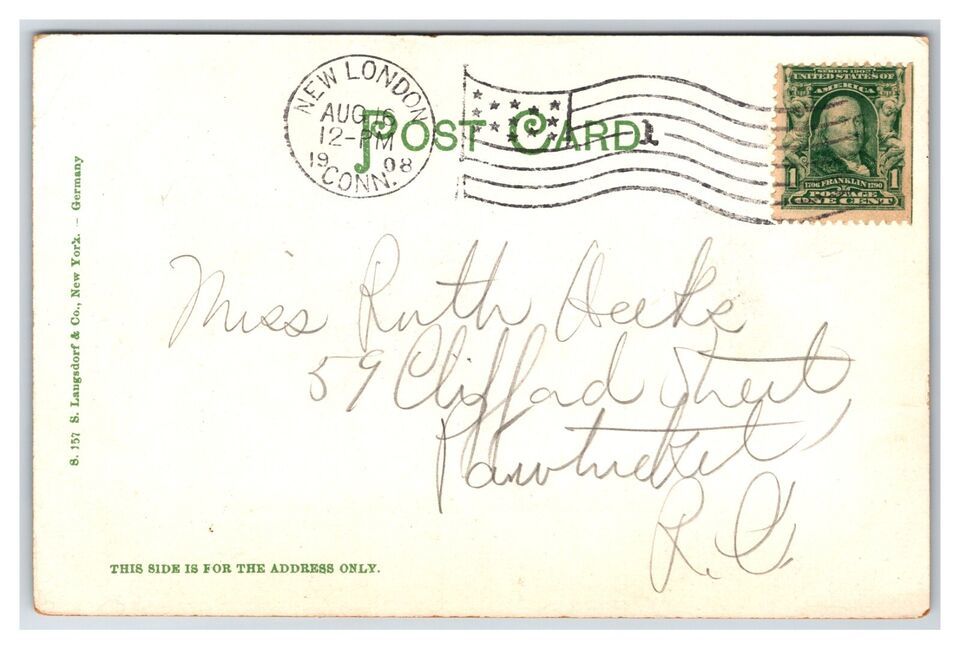 NEW LONDON
AUG 16
12-PM
1908
CONN.
POST CARD
1
SERIES 1902
UNITED STATES OF
AMERICA
1 1706 FRANKLIN 1790 1
POSTAGE
ONE CENT
S. 157 S. Langsdorf & Co., New York. - Germany
Miss Ruth
59 Clifford Street
Pawtucket
R.I.
THIS SIDE IS FOR THE ADDRESS ONLY.